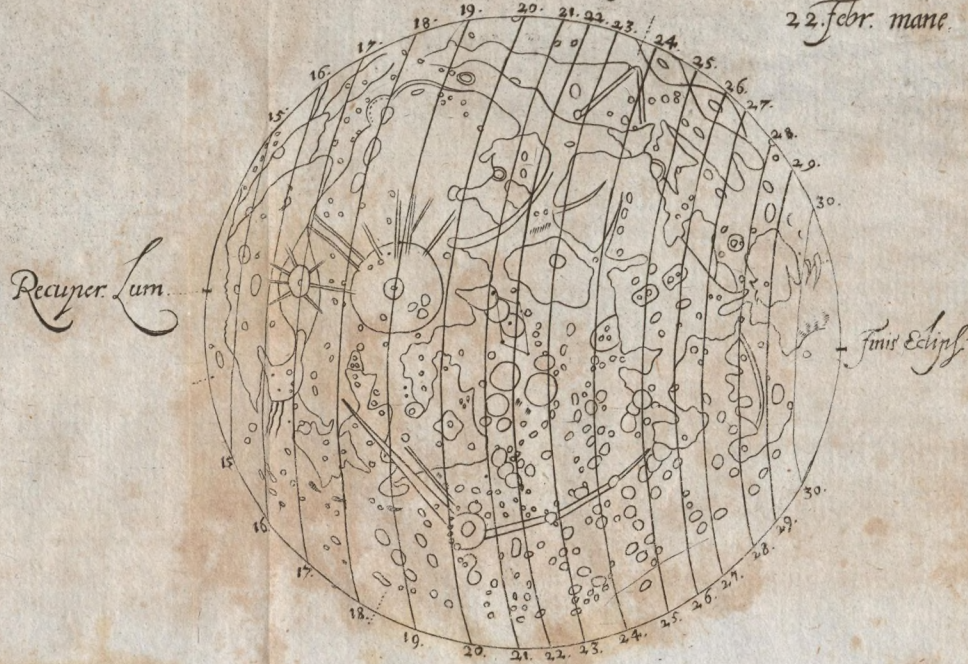 22. Febr. mane.
15.
16.
17.
18.
19.
20.
21.
22.
23.
24.
25.
26.
27.
28.
29.
30.
Recuper. Lum.
Finis Eclips.
15
16
17.
18.
19.
20.
21.
22.
23.
24.
25.
26.
27.
28.
29.
30.